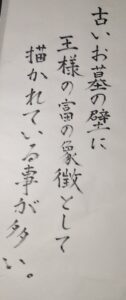 古いお墓の壁に
王様の富の象徴として
描かれている事が多い。